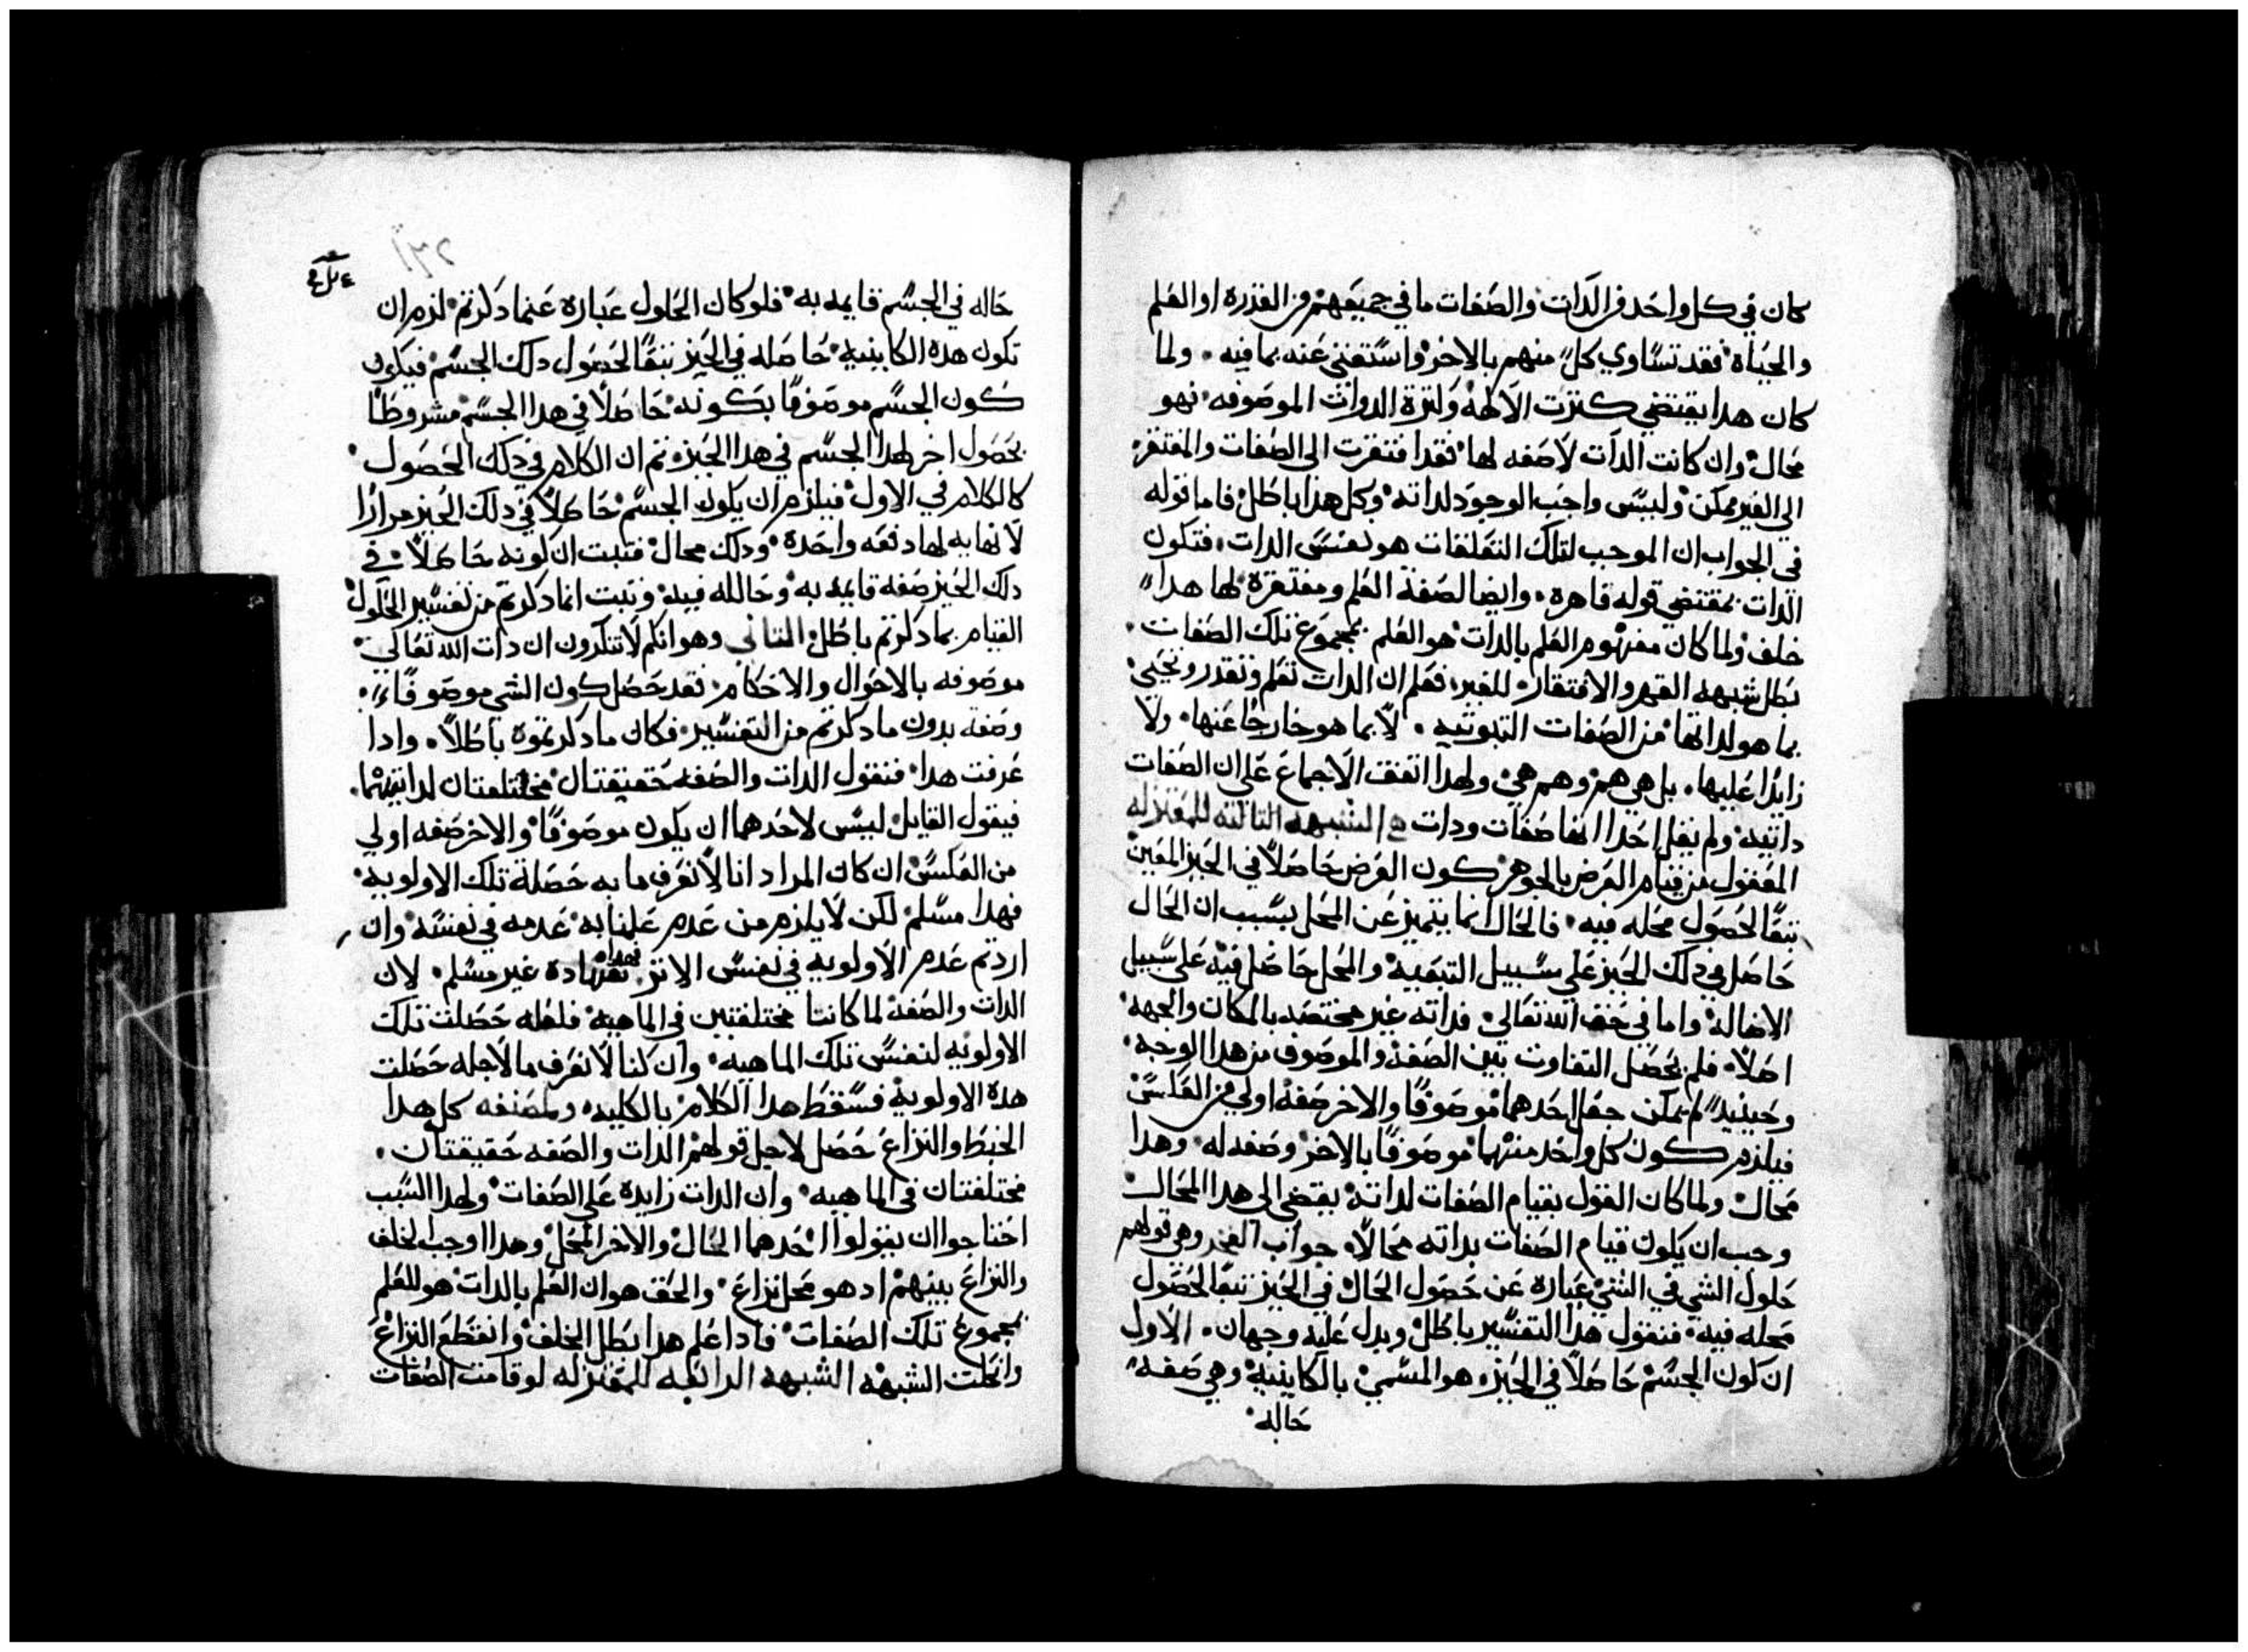 كان في كل واحد من الدات والصفات ما في جميعهم من القدره او العلم
والحياه فقد تساوي كل منهم بالاخر واستغني عنه بما فيه ولما
كان هدا يقتضي كثرت الالهه وكثرة الدوات الموصوفه فهو
محال وان كانت الدات لا صفه لها فقد افتقرت الى الصفات والمفتقر
الي الغير ممكن وليس واجب الوجود لداته وكل هدا باطل فاما قوله
في الجواب ان الموجب لتلك التعلقات هو نفس الدات فتكون
الدات بمقتضي قوله قاهره وايضا لصفة العلم ومفتقرة لها هدا
خلف ولما كان مفهوم العلم بالدات هو العلم بمجموع تلك الصفات
بطل شبهه القهر والافتقار للغير فعلم ان الدات تعلم وتقدر وتحيي
بما هو لداتها من الصفات التبوتيه لا بما هو خارجا عنها ولا
زايدا عليها بل هي هم وهم هي ولهدا اتفق الاجماع على ان الصفات
داتيه ولم يقل احدا انها صفات ودات الشبهه التالته للمعتزله
المعقول من قيام العرض بالجوهر كون العرض حاصلا في الحيز المعين
تبعا لحصول محله فيه فالحال انما يتميز عن المحل بسبب ان الحال
حاصل في دلك الحيز على سبيل التبعيه والمحل حاصل فيه على سبيل
الاصاله واما في حق الله تعالي فداته غير مختصه بالمكان والجهه
اصلا فلم يحصل التفاوت بين الصفه والموصوف من هدا الوجه
وحينيد لم يمكن جعل احدهما موصوفا والاخر صفه اولي من العكس
فيلزم كون كل واحد منهما موصوفا بالاخر وصفه له وهدا
محال ولما كان القول بقيام الصفات لداته يقتضي الى هدا المحال
وجب ان يكون قيام الصفات بداته محالا جواب الفخر وهي قولهم
حلول الشي في الشي عباره عن حصول الحال في الحيز تبعا لحصول
محله فيه فنقول هدا التفسير باطل ويدل عليه وجهان الاول
ان كون الجسم حاصلا في الحيز هو المسمي بالكاينيه وهي صفه
حاله
١٣٢
حاله في الجسم قايمه به فلو كان الحلول عباره عنما دكرتم لزم ان
تكون هده الكاينيه حاصله في الحيز تبعا لحصول دلك الجسم فيكون
كون الجسم موصوفا بكونه حاصلا في هدا الجسم مشروطا
بحصول اخر لهدا الجسم في هدا الحيز تم ان الكلام في دلك الحصول
كالكلام في الاول فيلزم ان يكون الجسم حاصلا في دلك الحيز مرارا
لا نهايه لها دفعه واحده ودلك محال فتبت ان كونه حاصلا في
دلك الحيز صفه قايمه به وحالله فيه وتبت انما دكرتم من تفسير الحلول
القيام بما دكرتم باطل التاني وهو انكم لا تنكرون ان دات الله تعالي
موصوفه بالاحوال والاحكام فقد حصل كون الشي موصوفا
وصفه بدون ما دكرتم من التفسير فكان ما دكرتموه باطلا وادا
عرفت هدا فنقول الدات والصفه حقيقتان مختلفتان لداتيهما
فيقول القايل ليس لاحدهما ان يكون موصوفا والاخر صفه اولي
من العكس ان كان المراد انا لا نعرف ما به حصلة تلك الاولويه
فهدا مسلم لكن لا يلزم من عدم علمنا به عدمه في نفسه وان
اردتم عدم الاولويه في نفس الامر فهدا غير مسلم لان
الدات والصفه لما كانتا مختلفتين في الماهيه فلعله حصلت تلك
الاولويه لنفس تلك الماهيه وان كنا لا نعرف ما لاجله حصلت
هده الاولويه فسقط هدا الكلام بالكليه ولمصنفه كل هدا
الخبط والنزاع حصل لاجل قولهم الدات والصفه حقيقتان
مختلفتان في الماهيه وان الدات زايده على الصفات ولهدا السبب
احتاجوا ان يقولوا احدهما الحال والاخر المحل وهدا اوجب الخلف
والنزاع بينهم اد هو محل نزاع والحق هو ان العلم بالدات هو للعلم
بمجموع تلك الصفات فادا علم هدا بطل الخلف وانقطع النزاع
وانحلت الشبهه الشبهه الرابعه للمعتزله لو قامت الصفات